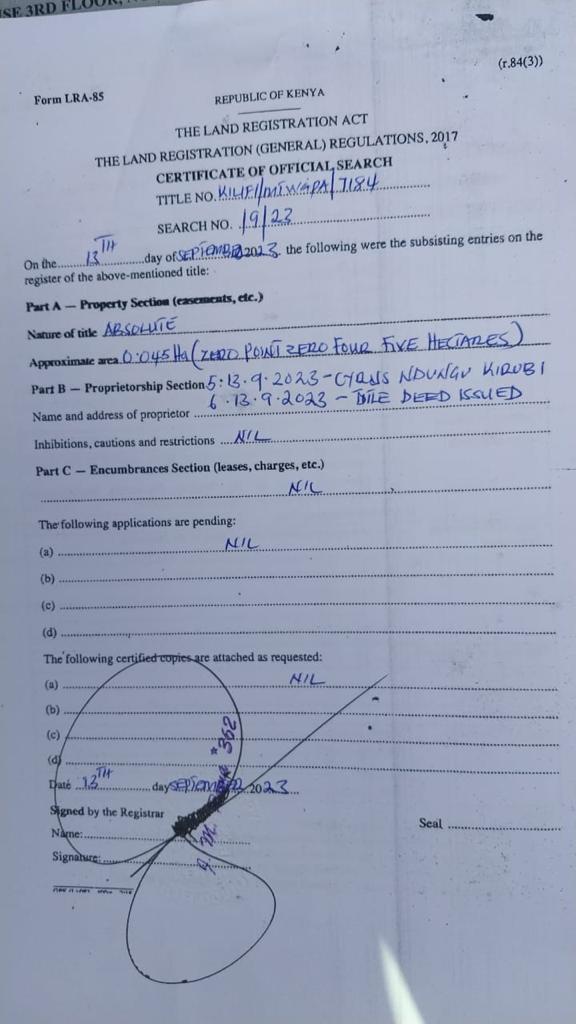 SE 3RD FLOOR,
(r.84(3))
Form LRA-85
REPUBLIC OF KENYA
THE LAND REGISTRATION ACT
THE LAND REGISTRATION (GENERAL) REGULATIONS, 2017
CERTIFICATE OF OFFICIAL SEARCH
TITLE NO. KILIFI/MTWAPA/7184
SEARCH NO. 19/23
On the 13TH day of SEPTEMBER 2023, the following were the subsisting entries on the
register of the above-mentioned title:
Part A — Property Section (easements, etc.)
Nature of title ABSOLUTE
Approximate area 0.045 Ha (ZERO POINT ZERO FOUR FIVE HECTARES)
Part B — Proprietorship Section 5: 13.9.2023 - CYRUS NDUNGU KIRUBI
6. 13.9.2023 - TITLE DEED ISSUED
Name and address of proprietor
Inhibitions, cautions and restrictions NIL
Part C — Encumbrances Section (leases, charges, etc.)
NIL
The following applications are pending:
(a) NIL
(b)
(c)
(d)
The following certified copies are attached as requested:
(a) NIL
(b)
(c)
(d)
Date 13TH day SEPTEMBER 2023
Signed by the Registrar
Name:
Signature:
Seal
* 362